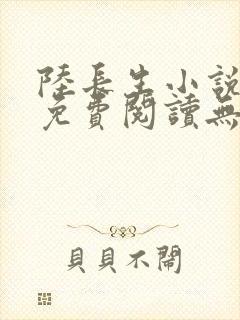 陸長生小說
免費閱讀無
貝貝不鬧